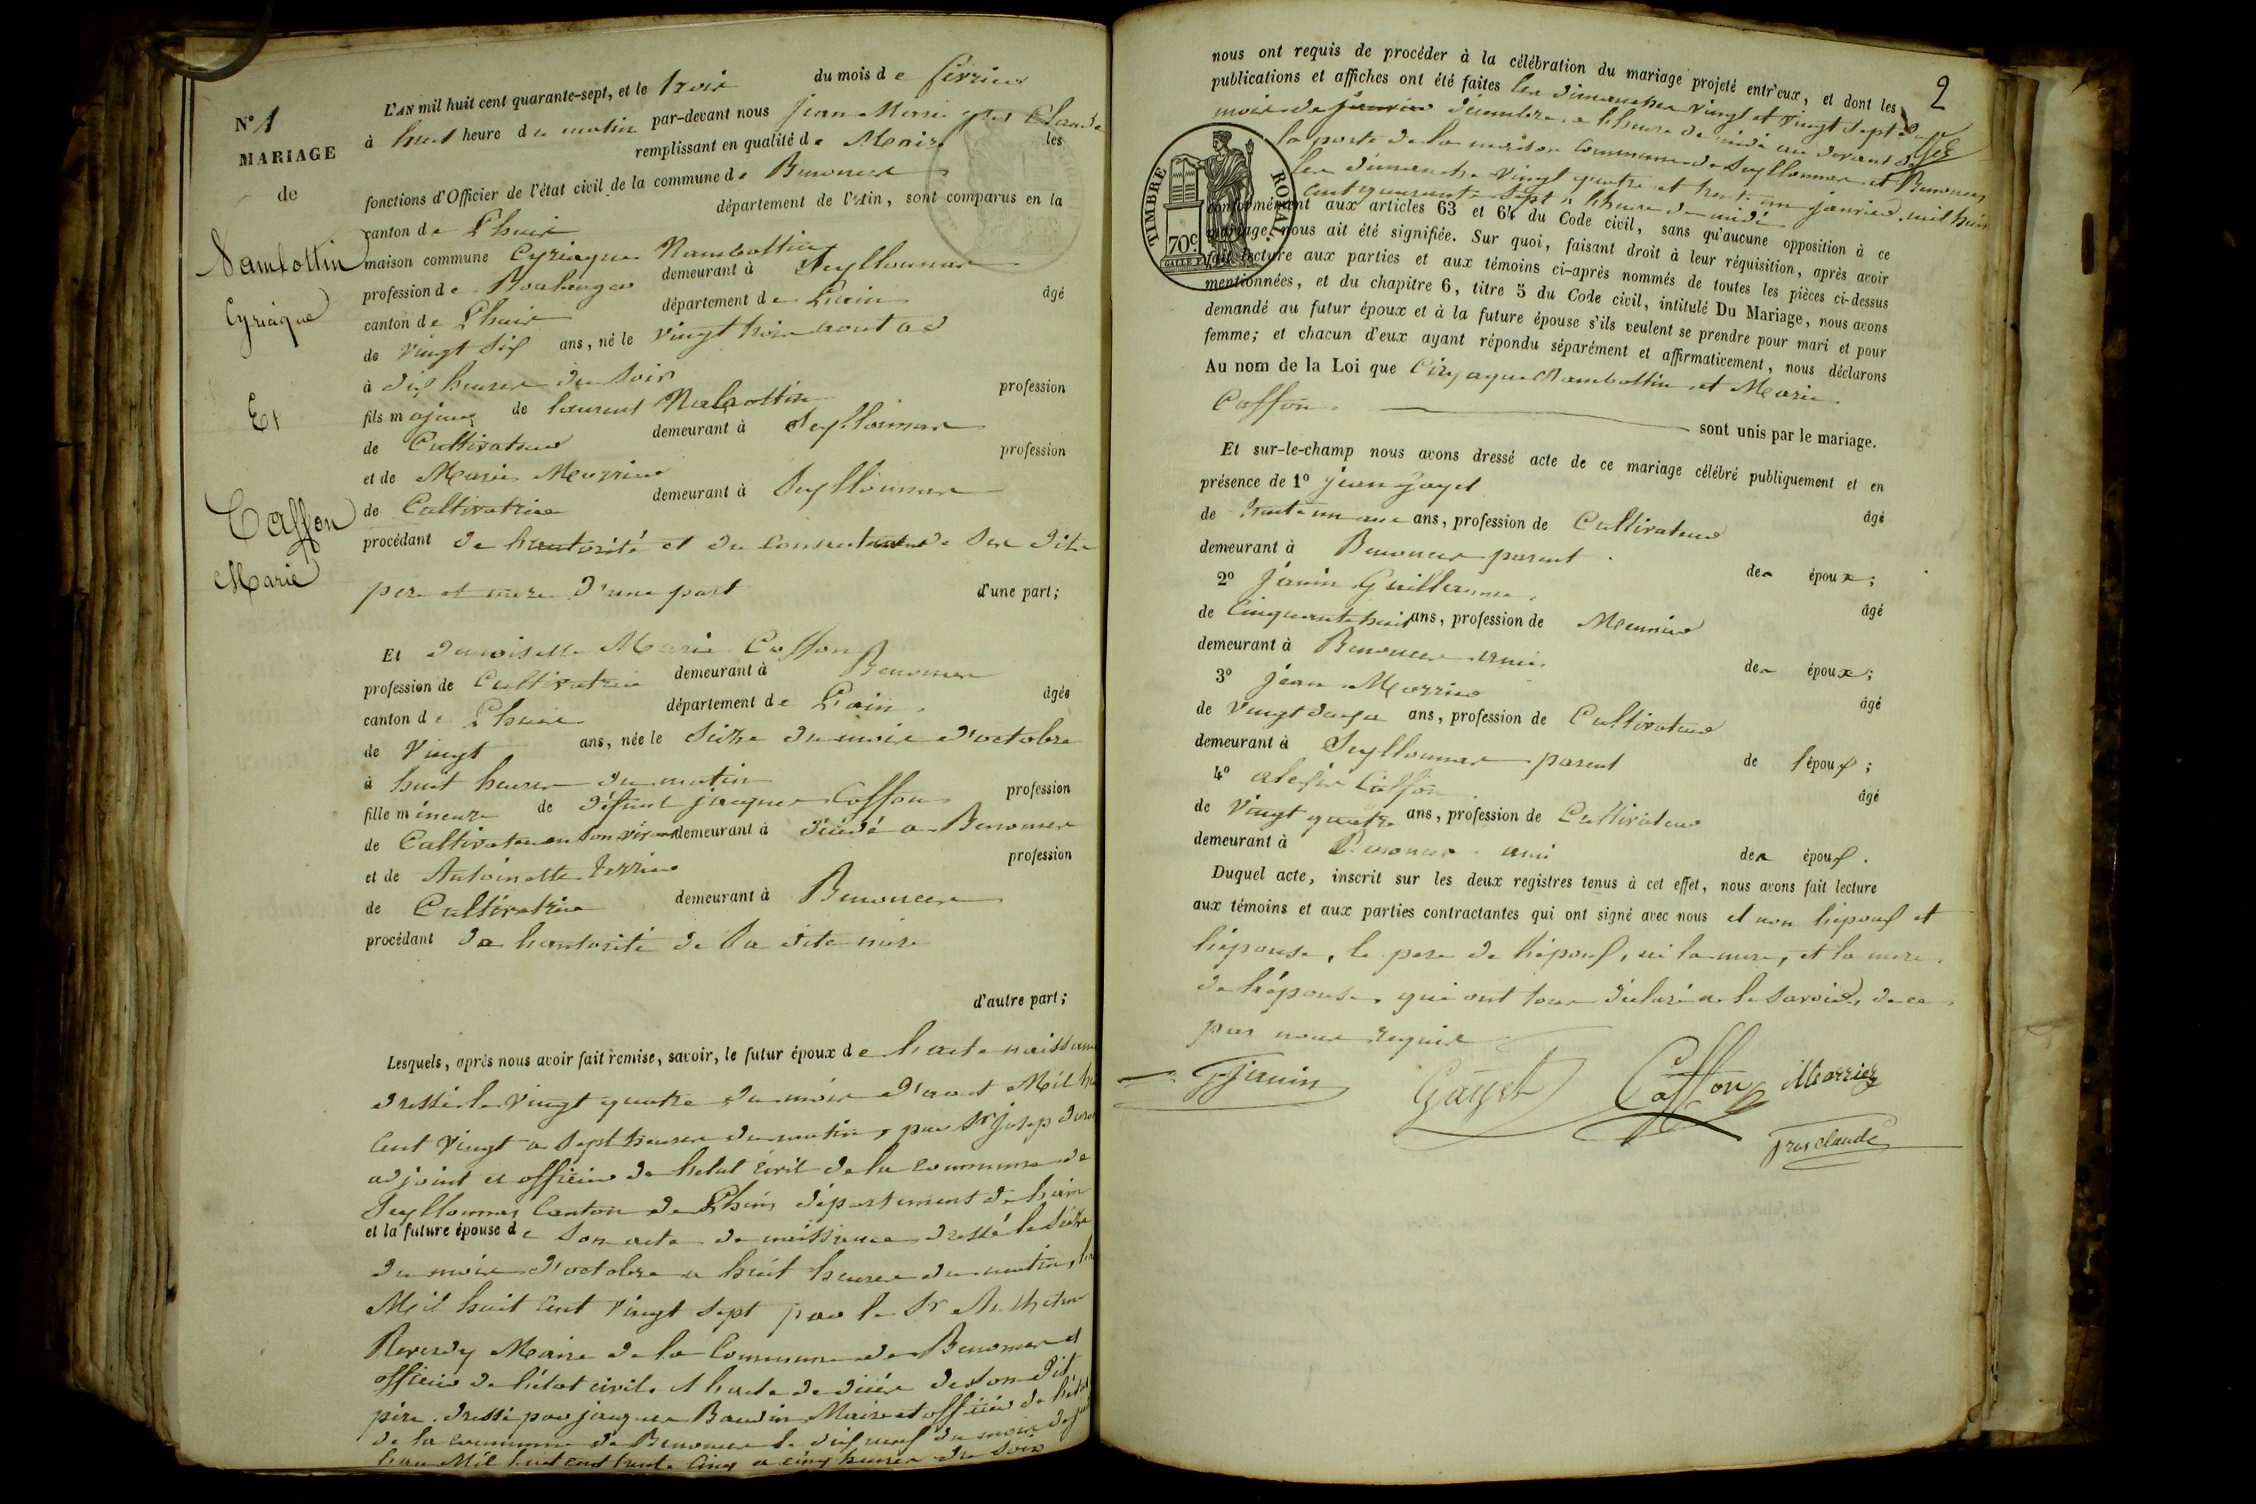 N° 1
MARIAGE
de
Nambottin
Cyriaque
Et
Caffon
Marie
L'AN mil huit cent quarante-sept, et le trois du mois de février
à huit heure du matin par-devant nous Jean Marie Claude
remplissant en qualité de Maire les
fonctions d'Officier de l'état civil de la commune de Benonces
canton de Lhuis département de l'Ain, sont comparus en la
maison commune Cyriaque Nambottin
profession de Boulanger demeurant à Seyllonnas
canton de Lhuis département de L'ain âgé
de vingt six ans, né le vingt trois aout
à dix heures du soir
fils majeur de laurent Nabottin profession
de Cultivateur demeurant à Seyllonnas
et de Marie Merrier profession
de Cultivatrice demeurant à Seyllonnas
procédant de hautorité et du consentement de Ses dits
pere et mere d'une part d'une part;
Et demoiselle Marie Caffon
profession de Cultivatrice demeurant à Benonces
canton de Lhuis département de L'ain âgée
de Vingt ans, née le Seize du mois d'octobre
à huit heures du matin
fille mineure de défunt jacques Caffon profession
de Cultivateur en son vivant demeurant à décédé a Benonces
et de Antoinette profession
de Cultivatrice demeurant à Benonces
procédant de hautorité de Sa dite mère
d'autre part;
Lesquels, après nous avoir fait remise, savoir, le futur époux de hacte naissance
dressé le vingt quatre du mois d'aout Mil
Cent Vingt a Sept heures du matin, par Sr Josep
adjoint et officier de hetat civil de la commune de
Seyllonnas Canton de Lhuis département de hain
et la future épouse de Son acte de naissance dressé le Seize
du mois d'octobre a huit heures du matin,
Mil huit Cent Vingt Sept par le Sr
Reverdy Maire de la Commune de Benonces et
officier de hétat civil et hacte de décés de Son dit
père dressé par jacques Baudin Maire et officier de
de la commune de Benonces le dix neuf du mois
han Mil huit cent trente Cinq a cinq heures du Soir
2
nous ont requis de procéder à la célébration du mariage projeté entr'eux, et dont les
publications et affiches ont été faites les dimanches vingt et vingt Sept
mois de janvier décembre a hheure de midi au devant de
la porte de la maison Commune de Seyllonnas et Benonces
les dimanche vingt quatre et trente un janvier mil huit
cent quarante Sept a hheure de midi
TIMBRE ROYAL
70c
conformément aux articles 63 et 64 du Code civil, sans qu'aucune opposition à ce
mariage nous ait été signifiée. Sur quoi, faisant droit à leur réquisition, après avoir
fait lecture aux parties et aux témoins ci-après nommés de toutes les pièces ci-dessus
mentionnées, et du chapitre 6, titre 5 du Code civil, intitulé Du Mariage, nous avons
demandé au futur époux et à la future épouse s'ils veulent se prendre pour mari et pour
femme; et chacun d'eux ayant répondu séparément et affirmativement, nous déclarons
Au nom de la Loi que Ciryaque Nambottin et Marie
Caffon sont unis par le mariage.
Et sur-le-champ nous avons dressé acte de ce mariage célébré publiquement et en
présence de 1° jean Gayet âgé
de trente un ans, profession de Cultivateur
demeurant à Benonces parent des époux;
2° Janin Guillaume âgé
de Cinquante huit ans, profession de Meunier
demeurant à Benonces ami des époux;
3° jean Merrier âgé
de Vingt ans, profession de Cultivateur
demeurant à Seyllonnas parent de lépoux;
4° alexis Caffon âgé
de Vingt quatre ans, profession de Cultivateur
demeurant à Benonces ami des époux.
Duquel acte, inscrit sur les deux registres tenus à cet effet, nous avons fait lecture
aux témoins et aux parties contractantes qui ont signé avec nous et non hépoux et
hépouse, le pere de hépoux, ni la mere, et la mere
de hépouse, qui ont tous déclaré ne le Savoir, de ce
par nous requis
Janin Gayet Caffon Merrier
Trosclaude